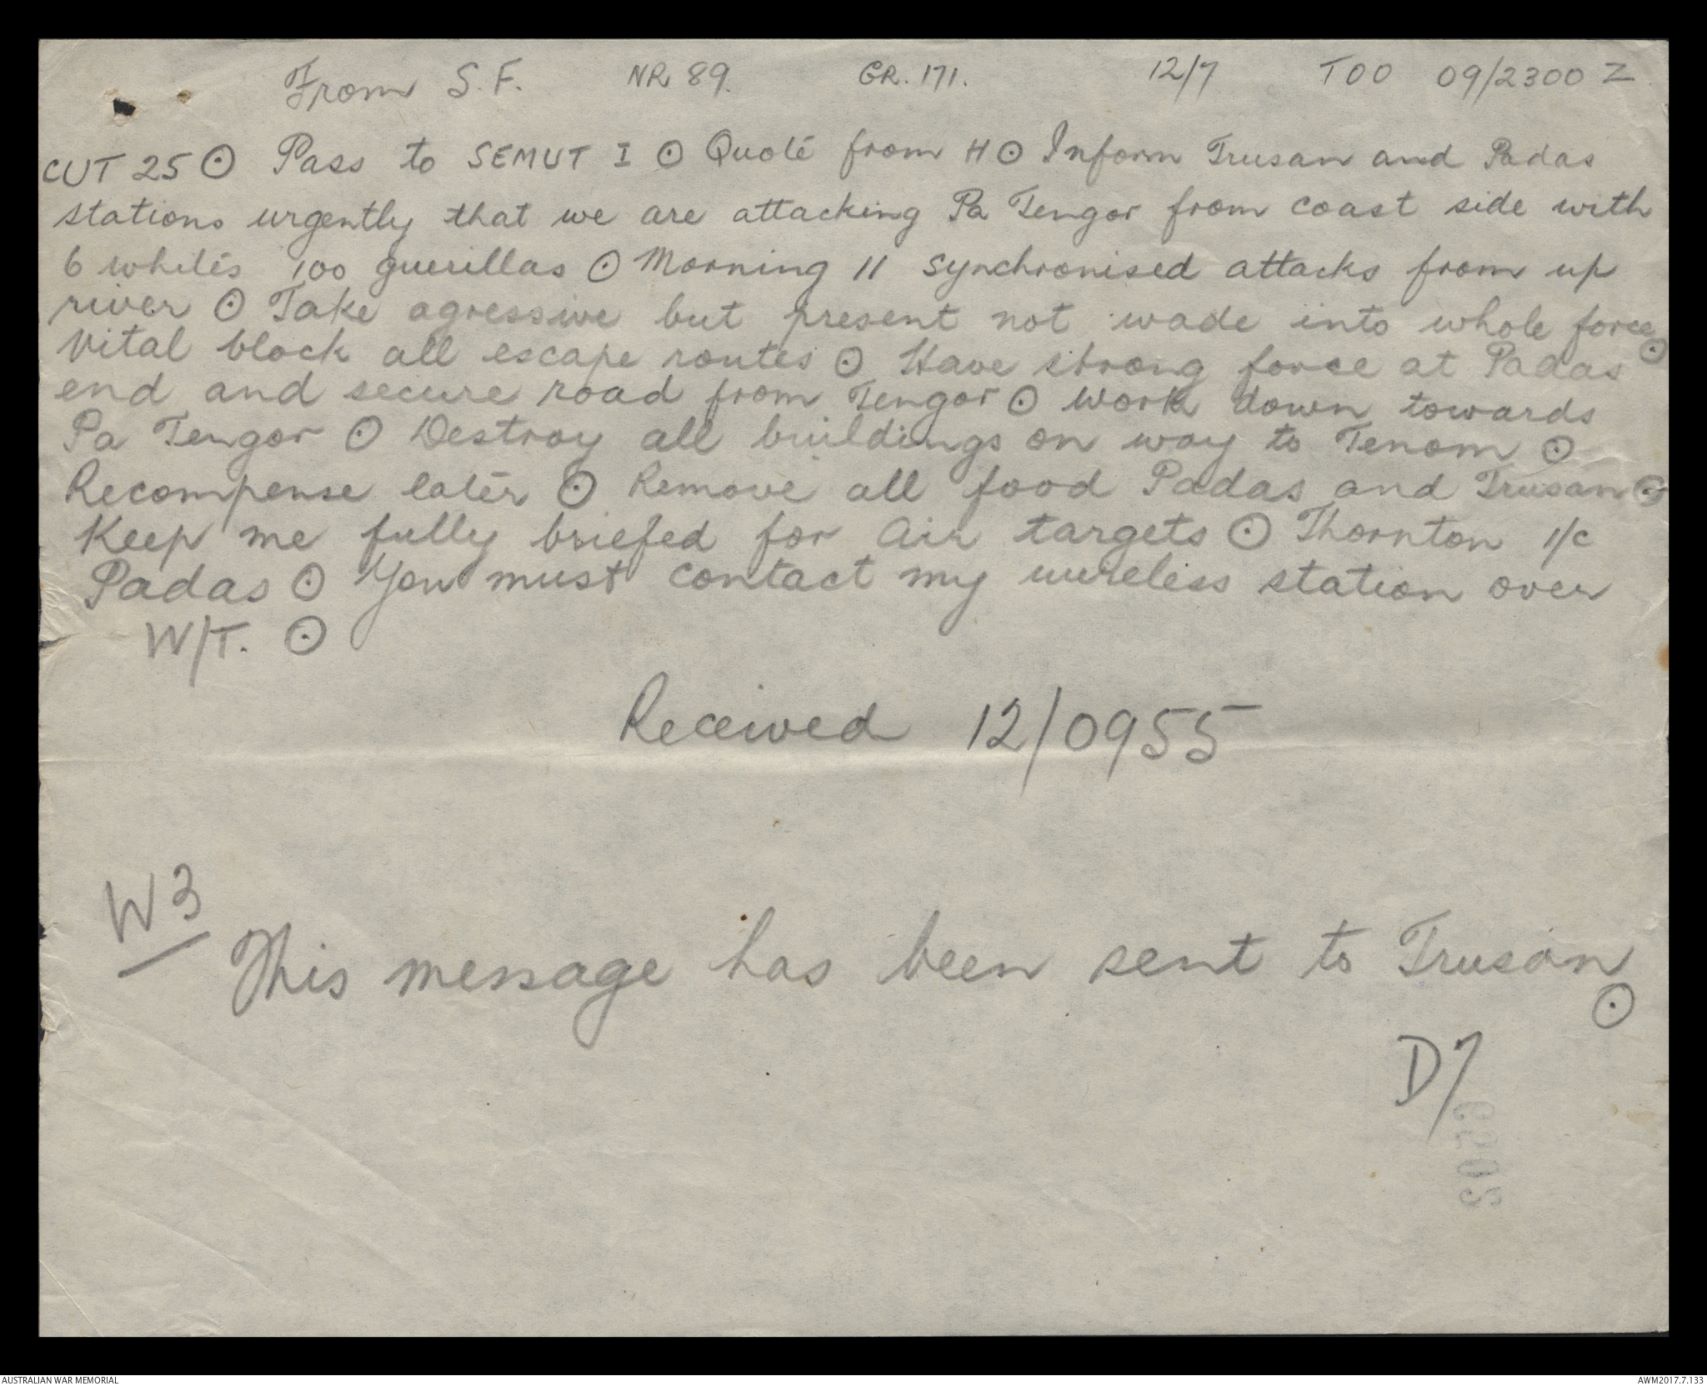 From S.F. NR 89. GR. 171. 12/7 TOO 09/2300 Z
CUT 25 ⊙ Pass to SEMUT I ⊙ Quote from H ⊙ Inform Trusan and Padas
stations urgently that we are attacking Pa Tengor from coast side with
6 whites 100 guerillas ⊙ Morning 11 synchronised attacks from up
river ⊙ Take agressive but present not wade into whole force ⊙
Vital block all escape routes ⊙ Have strong force at Padas
end and secure road from Tengor ⊙ Work down towards
Pa Tengor ⊙ Destroy all buildings on way to Tenom ⊙
Recompense later ⊙ Remove all food Padas and Trusan ⊙
Keep me fully briefed for air targets ⊙ Thornton i/c
Padas ⊙ You must contact my wireless station over
W/T. ⊙
Received 12/0955
W3
This message has been sent to Trusan ⊙
D7
AUSTRALIAN WAR MEMORIAL AWM2017.7.133